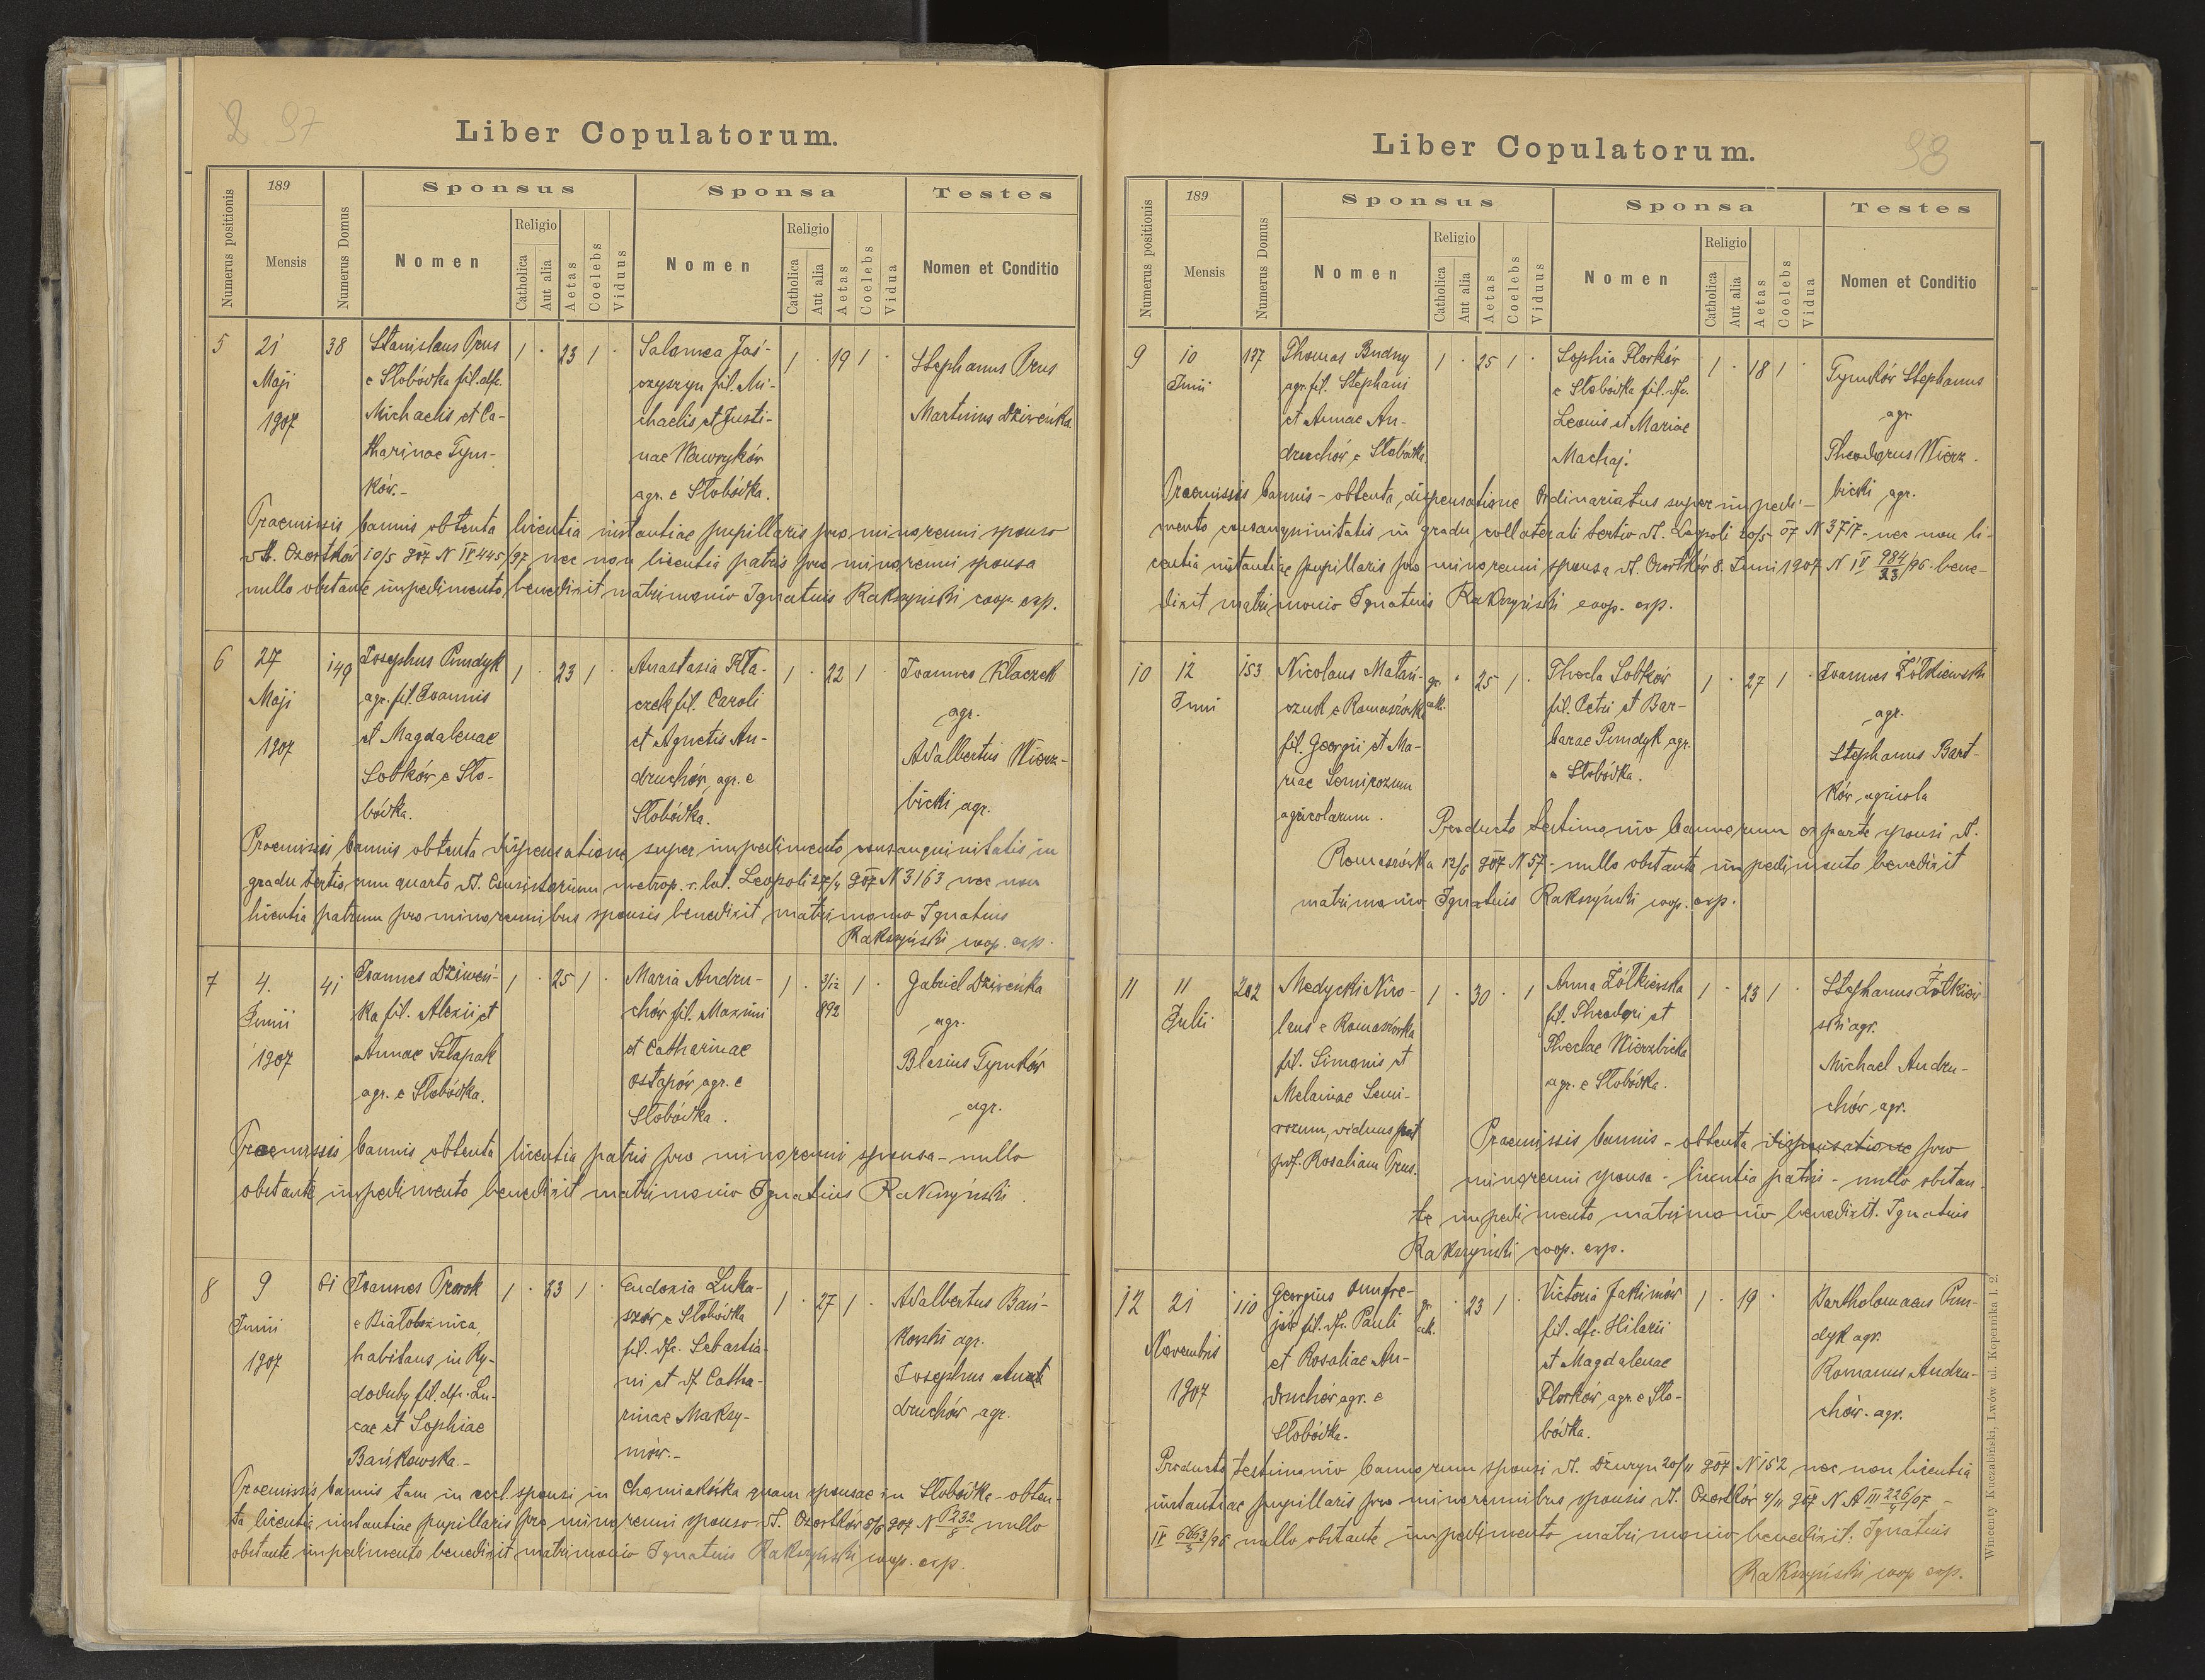 2 97
Liber Copulatorum.
Numerus positionis
189
Mensis
Numerus Domus
Sponsus
Nomen
Religio
Catholica
Aut alia
Aetas
Coelebs
Viduus
Sponsa
Nomen
Religio
Catholica
Aut alia
Aetas
Coelebs
Vidua
Testes
Nomen et Conditio
5
21
Maji
1907
38
Stanislaus Prus
e Słobódka fil. dfc.
Michaelis et Ca-
tharinae Tym-
ków.-
1 · 23 1 ·
Salomea Jaś-
czyszyn fil. Mi-
chaëlis et Justi-
nae Wawryków
agr. e Słobódka.
1 · 19 1 ·
Stephanus Prus
Martinus Dziweńka
Praemissis bannis obtenta licentia instantiae pupillaris pro minorenni sponso
dt. Czortków 10/5 907 N IV 445/97 nec non licentia patris pro minorenni sponsa
nullo obstante impedimento benedixit matrimonio Ignatius Rakszyński coop. exp.
6
27
Maji
1907
149
Josephus Pundyk
agr. fil. Joannis
et Magdalenae
Sobków e Sło-
bódka.
1 · 23 1 ·
Anastasia Kła-
czek fil. Caroli
et Agnetis An-
druchów, agr. e
Słobódka.
1 · 22 1 ·
Joannes Kłaczek
agr.
Adalbertus Wierz-
bicki agr.
Praemissis bannis obtenta dispensatione super impedimento consanguinitatis in
gradu tertio cum quarto dt. Consistorium metrop. r. lat. Leopoli 27/4 907 N 3163 nec non
licentia patrum pro minorennibus sponsis benedixit matrimonio Ignatius
Rakszyński coop. exp.
7
4.
Junii
1907
41
Joannes Dziweń-
ka fil. Alexii et
Annae Sztapak
agr. e Słobódka.
1 · 25 1 ·
Maria Andru-
chów fil. Maximi
et Catharinae
Ostapów agr. e
Słobódka.
1 · 3/12 1 ·
892
Gabriel Dziweńka
agr.
Blasius Tymków
agr.
Praemissis bannis obtenta licentia patris pro minorenni sponsa - nullo
obstante impedimento benedixit matrimonio Ignatius Rakszyński.
8
9
Junii
1907
61
Joannes Prorok
e Białobożnica,
habitans in Ry-
doduby fil. dfc. Lu-
cae et Sophiae
Bańkowska.-
1 · 23 1 ·
Eudoxia Luka-
szów e Słobódka
fil. dfc. Sebastia-
ni et df Catha-
rinae Maksy-
mów.-
1 · 27 1 ·
Adalbertus Bań-
kowski agr.
Josephus An
druchów agr.
Praemissis bannis tam in eccl. sponsi in Chomiakówka quam sponsae in Słobódka - obten-
ta licentia instantiae pupillaris pro minorenni sponso dt. Czortków 8/6 907 N P 232/5 nullo
obstante impedimento benedixit matrimonio Ignatius Rakszyński coop. exp.
98
Liber Copulatorum.
Numerus positionis
189
Mensis
Numerus Domus
Sponsus
Nomen
Religio
Catholica
Aut alia
Aetas
Coelebs
Viduus
Sponsa
Nomen
Religio
Catholica
Aut alia
Aetas
Coelebs
Vidua
Testes
Nomen et Conditio
9
10
Junii
137
Thomas Budny
agr. fil. Stephani
et Annae An-
druchów e Słobódka
1 · 25 1 ·
Sophia Florków
e Słobódka fil. dfc.
Leonis et Mariae
Machaj.
1 · 18 1 ·
Tymków Stephanus
agr.
Theodorus Wierz-
bicki agr.
Praemissis bannis - obtenta dispensatione Ordinariatus super impedi-
mento consanguinitatis in gradu collaterali tertio dt. Leopoli 20/5 07 N 3717 - nec non li-
centia instantiae pupillaris pro minorenni sponsa dt. Czortków 8. Junii 1907 N IV 984/23/96 - bene-
dixit matrimonio Ignatius Rakszyński coop. exp.
10
12
Junii
153
Nicolaus Matań-
czuk e Romaszówka
fil. Georgii et Ma-
riae Semirozum
agricolarum.
gr. cath. · 25 1 ·
Thecla Sobków
fil. Petri et Bar-
barae Pundyk agr.
e Słobódka.
1 · 27 1 ·
Joannes Żółkiewski
agr.
Stephanus Bart-
ków agricola
Producto testimonio bannorum ex parte sponsi dt.
Romaszówka 12/6 907 N 57 - nullo obstante impedimento benedixit
matrimonio Ignatius Rakszyński coop. exp.
11
11
Julii
202
Medycki Nico-
laus e Romaszówka
fil. Simonis et
Melainae Semi-
rozum, viduus post
def. Rosaliam Prus.
1 · 30 · 1
Anna Żółkiewska
fil. Theodori et
Theclae Wierzbicka
agr. e Słobódka.
1 · 23 1 ·
Stephanus Żółkiew-
ski agr.
Michael Andru-
chów agr.
Praemissis bannis - obtenta dispensatione pro
minorenni sponsa - licentia patris - nullo obstan-
te impedimento matrimonio benedixit. Ignatius
Rakszyński coop. exp.
12
21
Novembris
1907
110
Georgius Onufre-
jów fil. dfc. Pauli
et Rosaliae An-
druchów agr. e
Słobódka.
gr. cath. · 23 1 ·
Victoria Jakimów
fil. dfc. Hilarii
et Magdalenae
Florków agr. e Sło-
bódka.
1 · 19 ·
Bartholomaeus Pun-
dyk agr.
Romanus Andru-
chów. agr.
Producto testimonio bannorum sponsi dt. Dżuryn 20/11 907 N 152 nec non licentia
instantiae pupillaris pro minorennibus sponsis dt. Czortków 4/11 907 N A III 226/7/07 -
IV 6663/3/96 nullo obstante impedimento matrimonio benedixit. Ignatius
Rakszyński coop exp.
Wincenty Kuczabiński, Lwów ul. Kopernika l. 2.